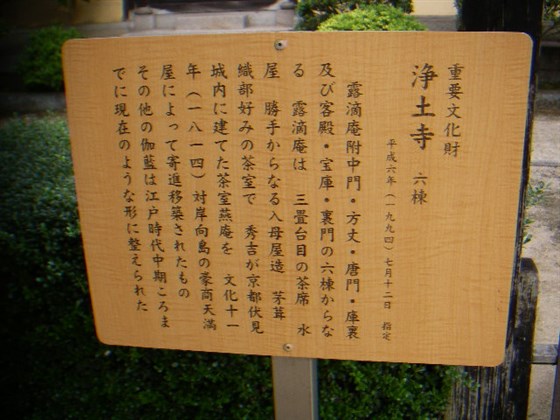 重要文化財
浄土寺 六棟
平成六年(一九九四)七月十二日 指定
露滴庵附中門・方丈・唐門・庫裏
及び客殿・宝庫・裏門の六棟からな
る 露滴庵は 三畳台目の茶席 水
屋 勝手からなる入母屋造 茅葺
織部好みの茶室で 秀吉が京都伏見
城内に建てた茶室燕庵を 文化十一
年(一八一四)対岸向島の豪商天満
屋によって寄進移築されたもの
その他の伽藍は江戸時代中期ころま
でに現在のような形に整えられた